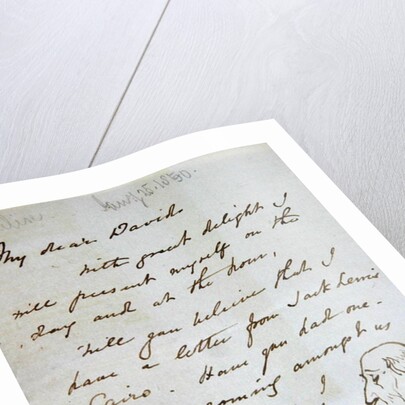 My dear David
with great delight I
will present myself on the
day and at the hour.
Will you believe that I
have a letter from Jack Lewis
Cairo. Have you had one.
coming amongst us
I